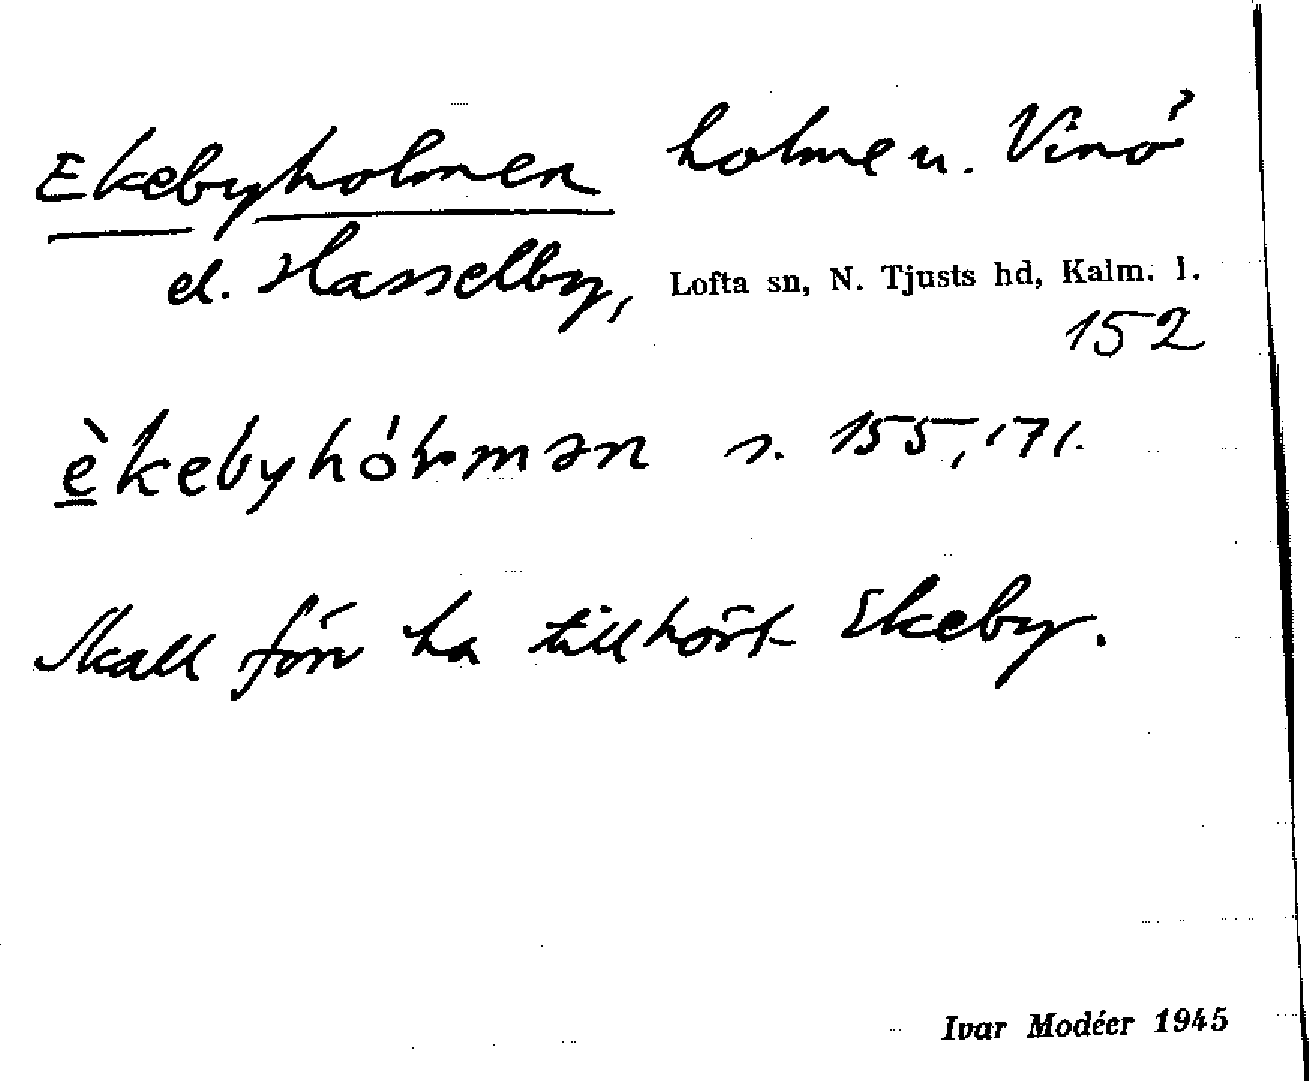 Ekebyholmen holme u. Vinö?
el. Hasselby, Lofta sn, N. Tjusts hd, Kalm. l.
152
èkebyhólmən s. 155, 171.
Skall förr ha tillhört Ekeby.
Ivar Modéer 1945